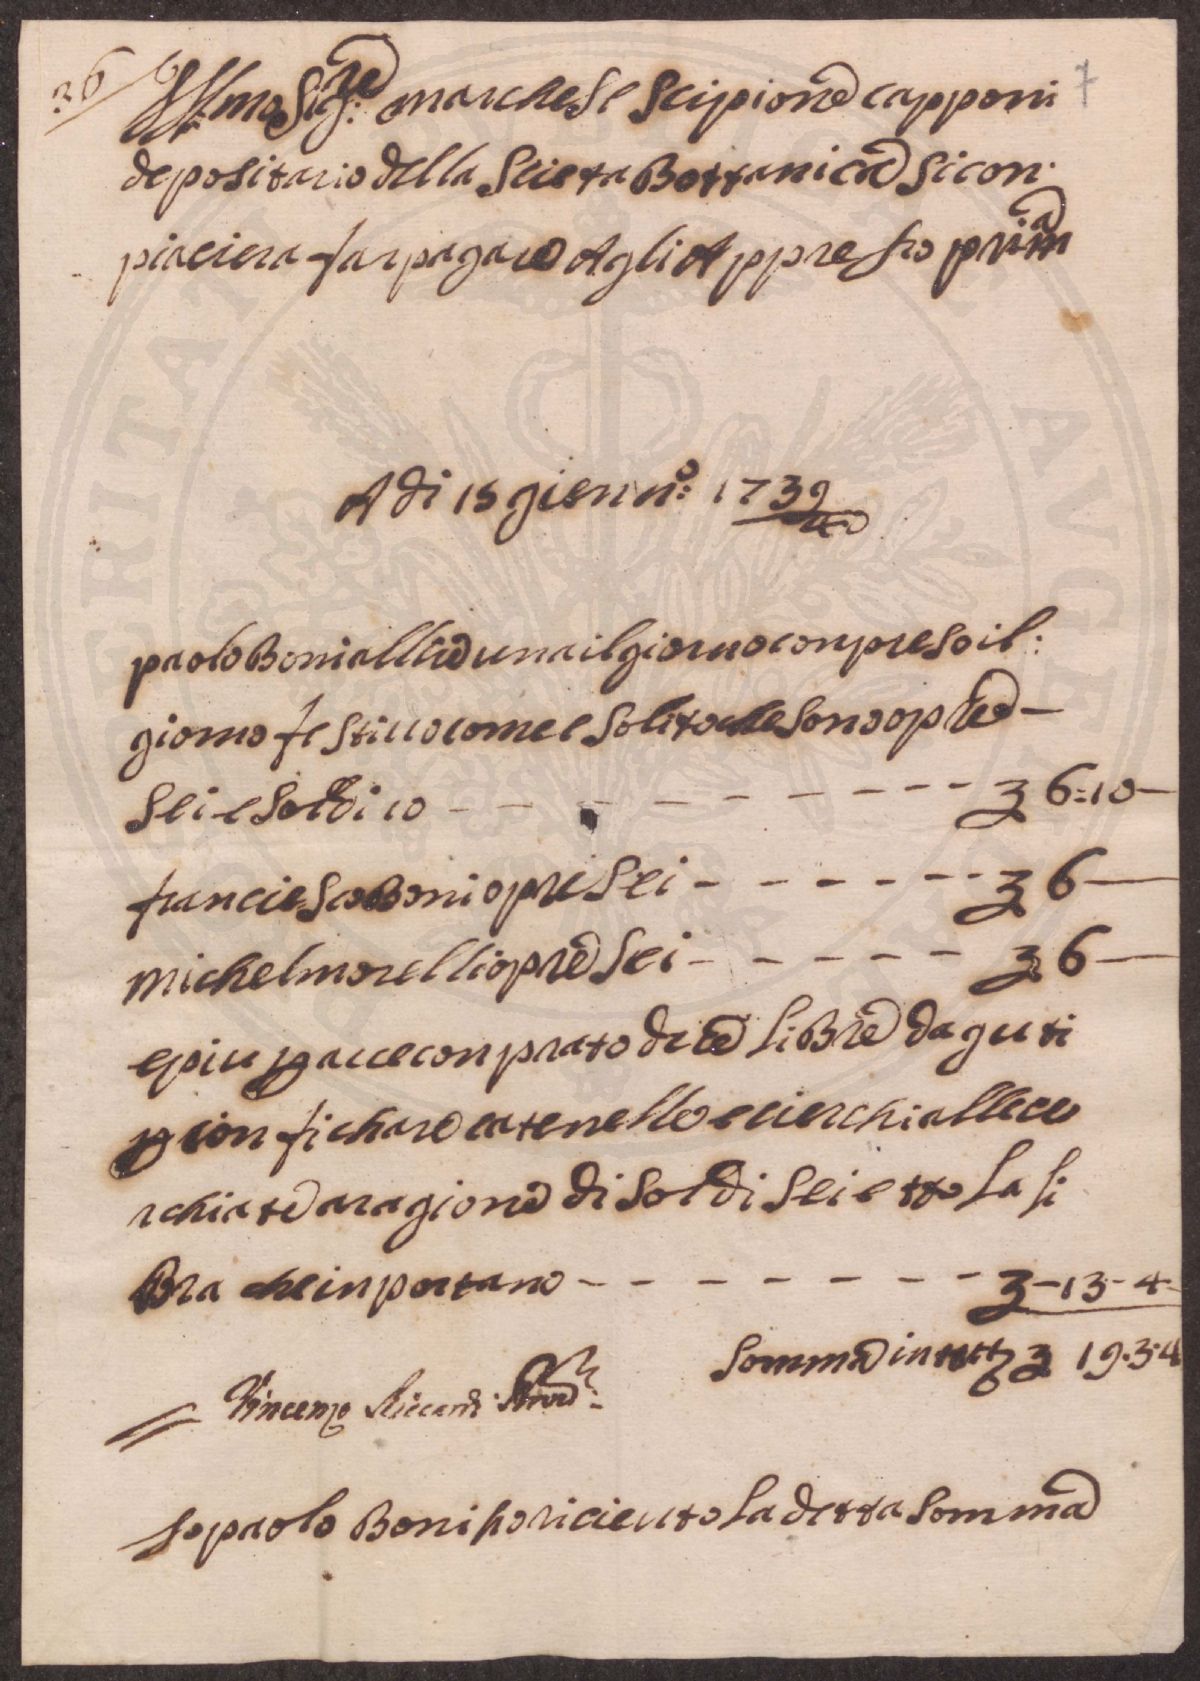 36
7
Ill:mo Sig:re marchese Scipione capponi
depositario della Scieta Bottanica Si con:
piaciera far pagare Agli Appresso prima
A di 15 gienn:o 1739
40
paolo Boni a llire una il giorno conpreso il:
giorno festivo come e Solito che sono opre —
Sei e Soldi 10 - - - - - - - - - - 3 6=10 —
franciesco Boni opre Sei - - - - - - - 3 6 —
Michel morelli opre Sei - - - - - 3 6 —
e piu p avece conprato dua libre d aguti
p con fichare catenelle e cierchi alle ce
rchiate a ragione di Soldi Sei e tto La li
Bra che inportano - - - - - - - 3 - 13 - 4 -
Somma in tutto 3 19.3:4
Vincenzo Riccardi Prov:re
Io paolo Boni ho riceuto La detta Somma
PROSPERITATI PUBLICAE AUGENDAE